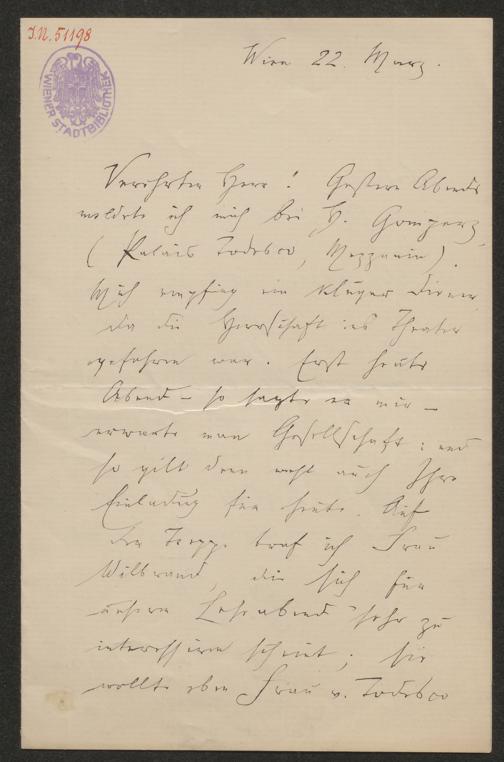 J.N. 51198
WIENER STADTBIBLIOTHEK
Wien 22. März.
Verehrter Herr! Gestern Abends
meldete ich mich bei H. Gomperz
(Palais Todesco, Mezzanin).
Mich empfing ein kluger Diener
da die Herrschaft ins Theater
gefahren war. Erst heute
Abend – so sagte er mir –
erwarte man Gesellschaft: und
so gilt denn wohl auch Ihre
Einladung für heute. Auf
der Treppe traf ich Frau
Wilbrand, die sich für
unseren Leseabend sehr zu
interessiren scheint; sie
wollte eben Frau v. Todesco